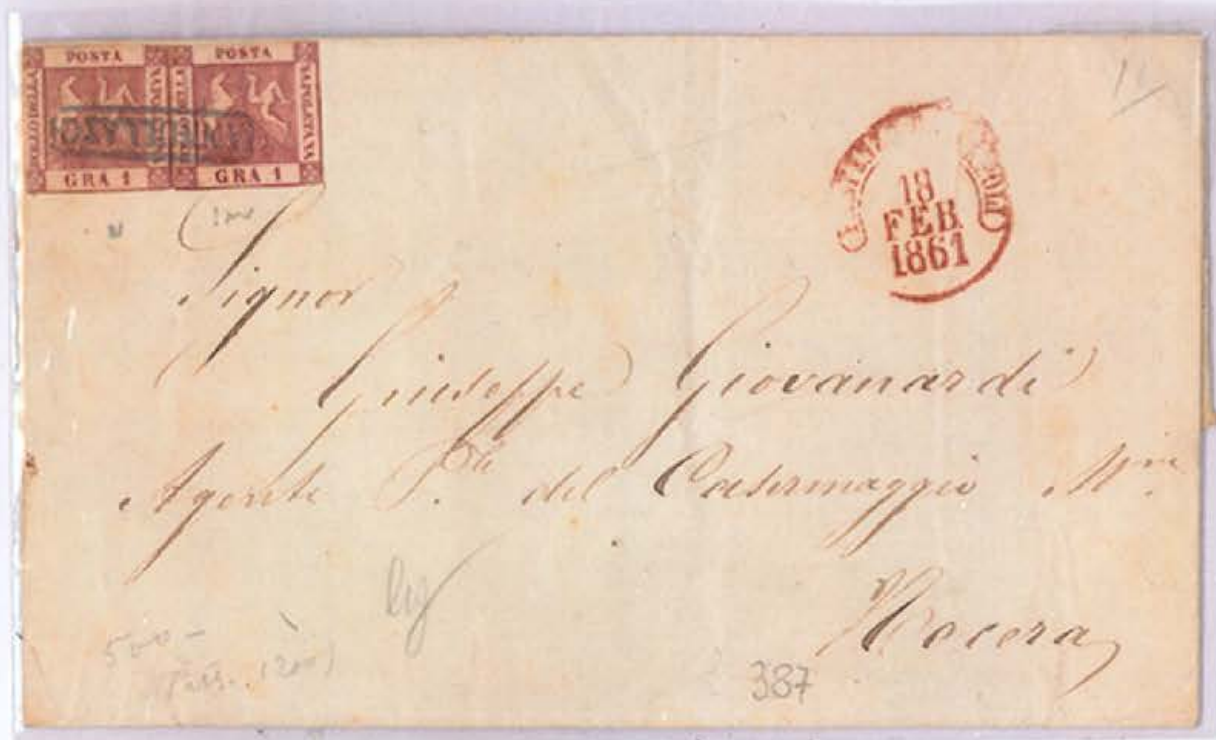 POSTA POSTA
NAPOLETANA
ANNULLATO
GRA 1 GRA 1
18
FEB
1861
Signor
Giuseppe Giovanardi
Agente P.le del Casermaggio Mre
Nocera
500-
387